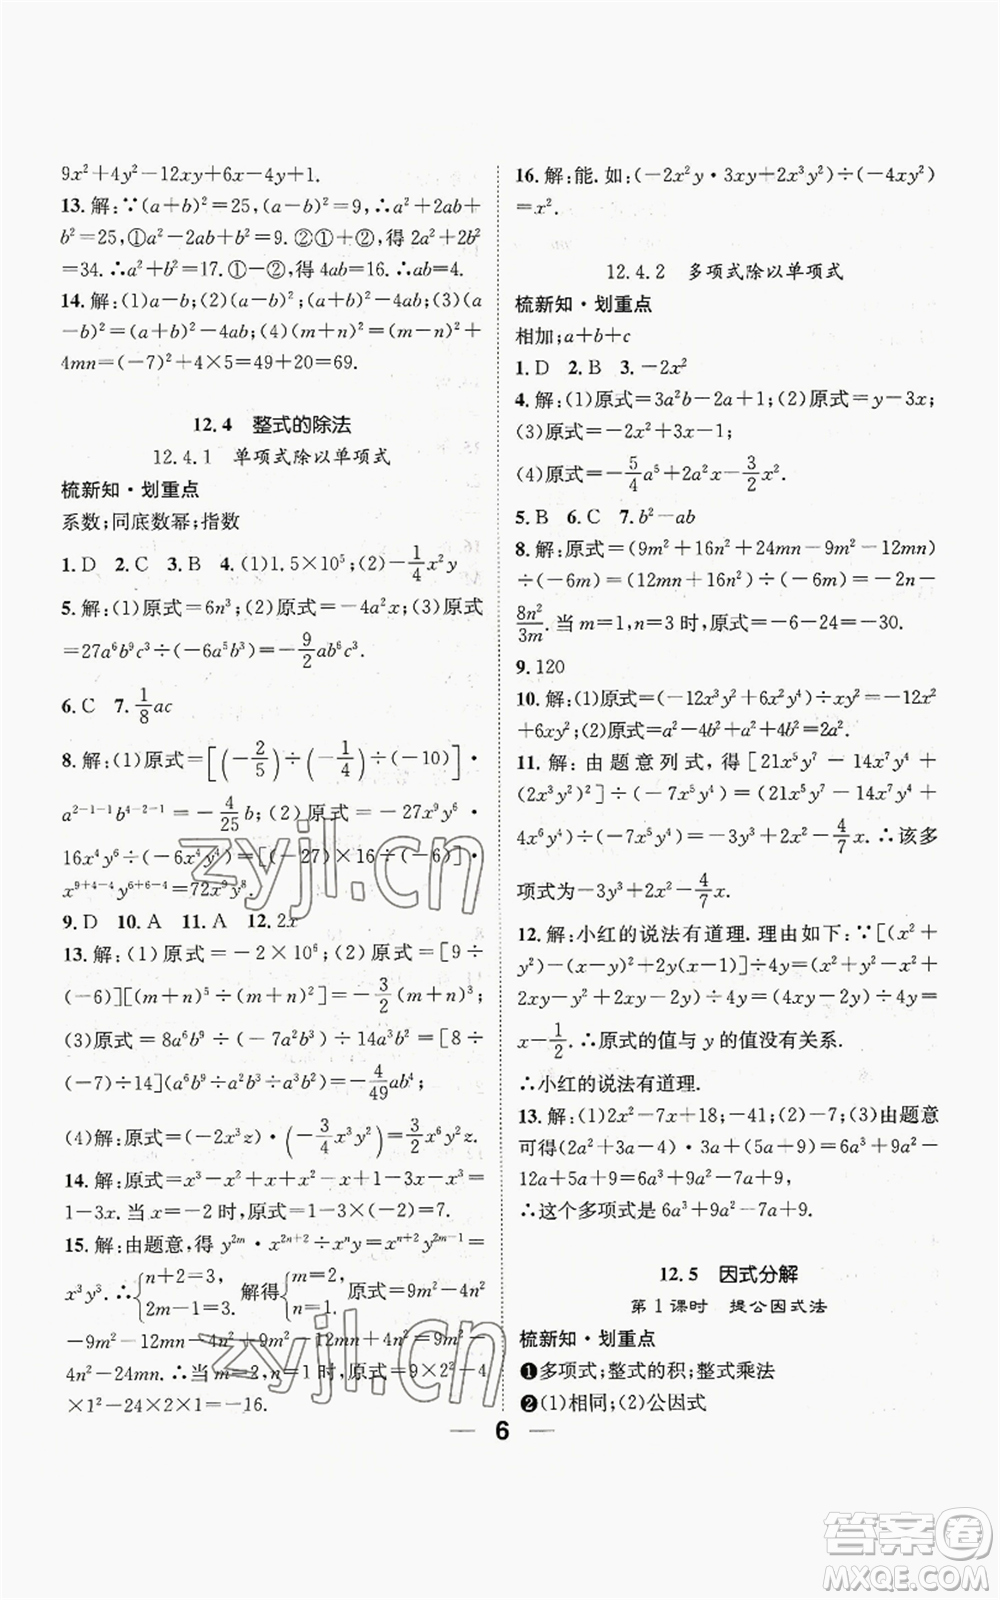 9x²+4y²-12xy+6x-4y+1.
13. 解:∵(a+b)²=25,(a-b)²=9,∴a²+2ab+
b²=25,①a²-2ab+b²=9. ②①+②,得 2a²+2b²
=34.∴a²+b²=17. ①-②,得 4ab=16.∴ab=4.
14. 解:(1)a-b;(2)(a-b)²;(a+b)²-4ab;(3)(a
-b)²=(a+b)²-4ab;(4)(m+n)²=(m-n)²+
4mn=(-7)²+4×5=49+20=69.
12.4 整式的除法
12.4.1 单项式除以单项式
梳新知·划重点
系数;同底数幂;指数
1. D 2. C 3. B 4. (1)1.5×10⁵;(2)-1/4x²y
5. 解:(1)原式=6n³;(2)原式=-4a²x;(3)原式
=27a⁶b⁹c³÷(-6a⁵b³)=-9/2ab⁶c³.
6. C 7. 1/8ac
8. 解:(1)原式=[(-2/5)÷(-1/4)÷(-10)]·
a²⁻¹⁻¹b⁴⁻²⁻¹=-4/25b;(2)原式=-27x⁹y⁶·
16x⁴y⁶÷(-6x⁴y⁴)=[(-27)×16÷(-6)]·
x⁹⁺⁴⁻⁴y⁶⁺⁶⁻⁴=72x⁹y⁸.
9. D 10. A 11. A 12. 2x
13. 解:(1)原式=-2×10⁶;(2)原式=[9÷
(-6)][(m+n)⁵÷(m+n)²]=-3/2(m+n)³;
(3)原式=8a⁶b⁹÷7a²b³÷14a³b²=[8÷
(-7)÷14](a⁶b⁹÷a²b³÷a³b²)=-4/49ab⁴;
(4)解:原式=(-2x³z)·(-3/4x³y²)=3/2x⁶y²z.
14. 解:原式=x³-x²+x+x²-x+1-3x-x³=
1-3x. 当x=-2时,原式=1-3×(-2)=7.
15. 解:由题意,得 y²ᵐ·x²ⁿ⁺²÷xⁿy=xⁿ⁺²y²ᵐ⁻¹=
x³y³.∴{n+2=3,2m-1=3, 解得{m=2,n=1. 原式=9m²-4n²
-9m²-12mn-4n²+9m²-12mn+4n²=9m²-
4n²-24mn.∴当m=2,n=1时,原式=9×2²-4
×1²-24×2×1=-16.
16. 解:能. 如:(-2x²y·3xy+2x³y²)÷(-4xy²)
=x².
12.4.2 多项式除以单项式
梳新知·划重点
相加;a+b+c
1. D 2. B 3. -2x²
4. 解:(1)原式=3a²b-2a+1;(2)原式=y-3x;
(3)原式=-2x²+x+1;
(4)原式=-5/4a⁵+2ax-3/2x².
5. B 6. C 7. b²-ab
8. 解:原式=(9m²+16n²+24mn-9m²-16n²)
÷(-6m)=(12mn+16n²)÷(-6m)=-2n-
8n²/3m. 当m=1,n=3时,原式=-6-24=-30.
9. 120
10. 解:(1)原式=(-12x³y²+6x²y⁴)÷xy²=-12x²
+6xy²;(2)原式=a²-4b²+a²+4b²=2a².
11. 解:由题意列式,得[21x⁵y⁷-14x⁷y⁴+
(2x³y²)²]÷(-7x⁵y⁴)=(21x⁵y⁷-14x⁷y⁴+
4x⁶y⁴)÷(-7x⁵y⁴)=-3y³+2x²-4/7x.∴该多
项式为-3y³+2x²-4/7x.
12. 解:小红的说法有道理. 理由如下:∵[(x²+
y²)-(x-y)²+2y(x-1)]÷4y=(x²+y²-x²+
2xy-y²+2xy-2y)÷4y=(4xy-2y)÷4y=
x-1/2.∴原式的值与y的值没有关系.
∴小红的说法有道理.
13. 解:(1)2x²-7x+18;-41;(2)-7;(3)由题意
可得(2a²+3a-4)·3a+(5a+9)=6a³+9a²-
12a+5a+9=6a³+9a²-7a+9,
∴这个多项式是6a³+9a²-7a+9.
12.5 因式分解
第1课时 提公因式法
梳新知·划重点
❶多项式;整式的积;整式乘法
❷(1)相同;(2)公因式
6
zyjl.cn
zyjl.cn
答案圈
MXQE.COM